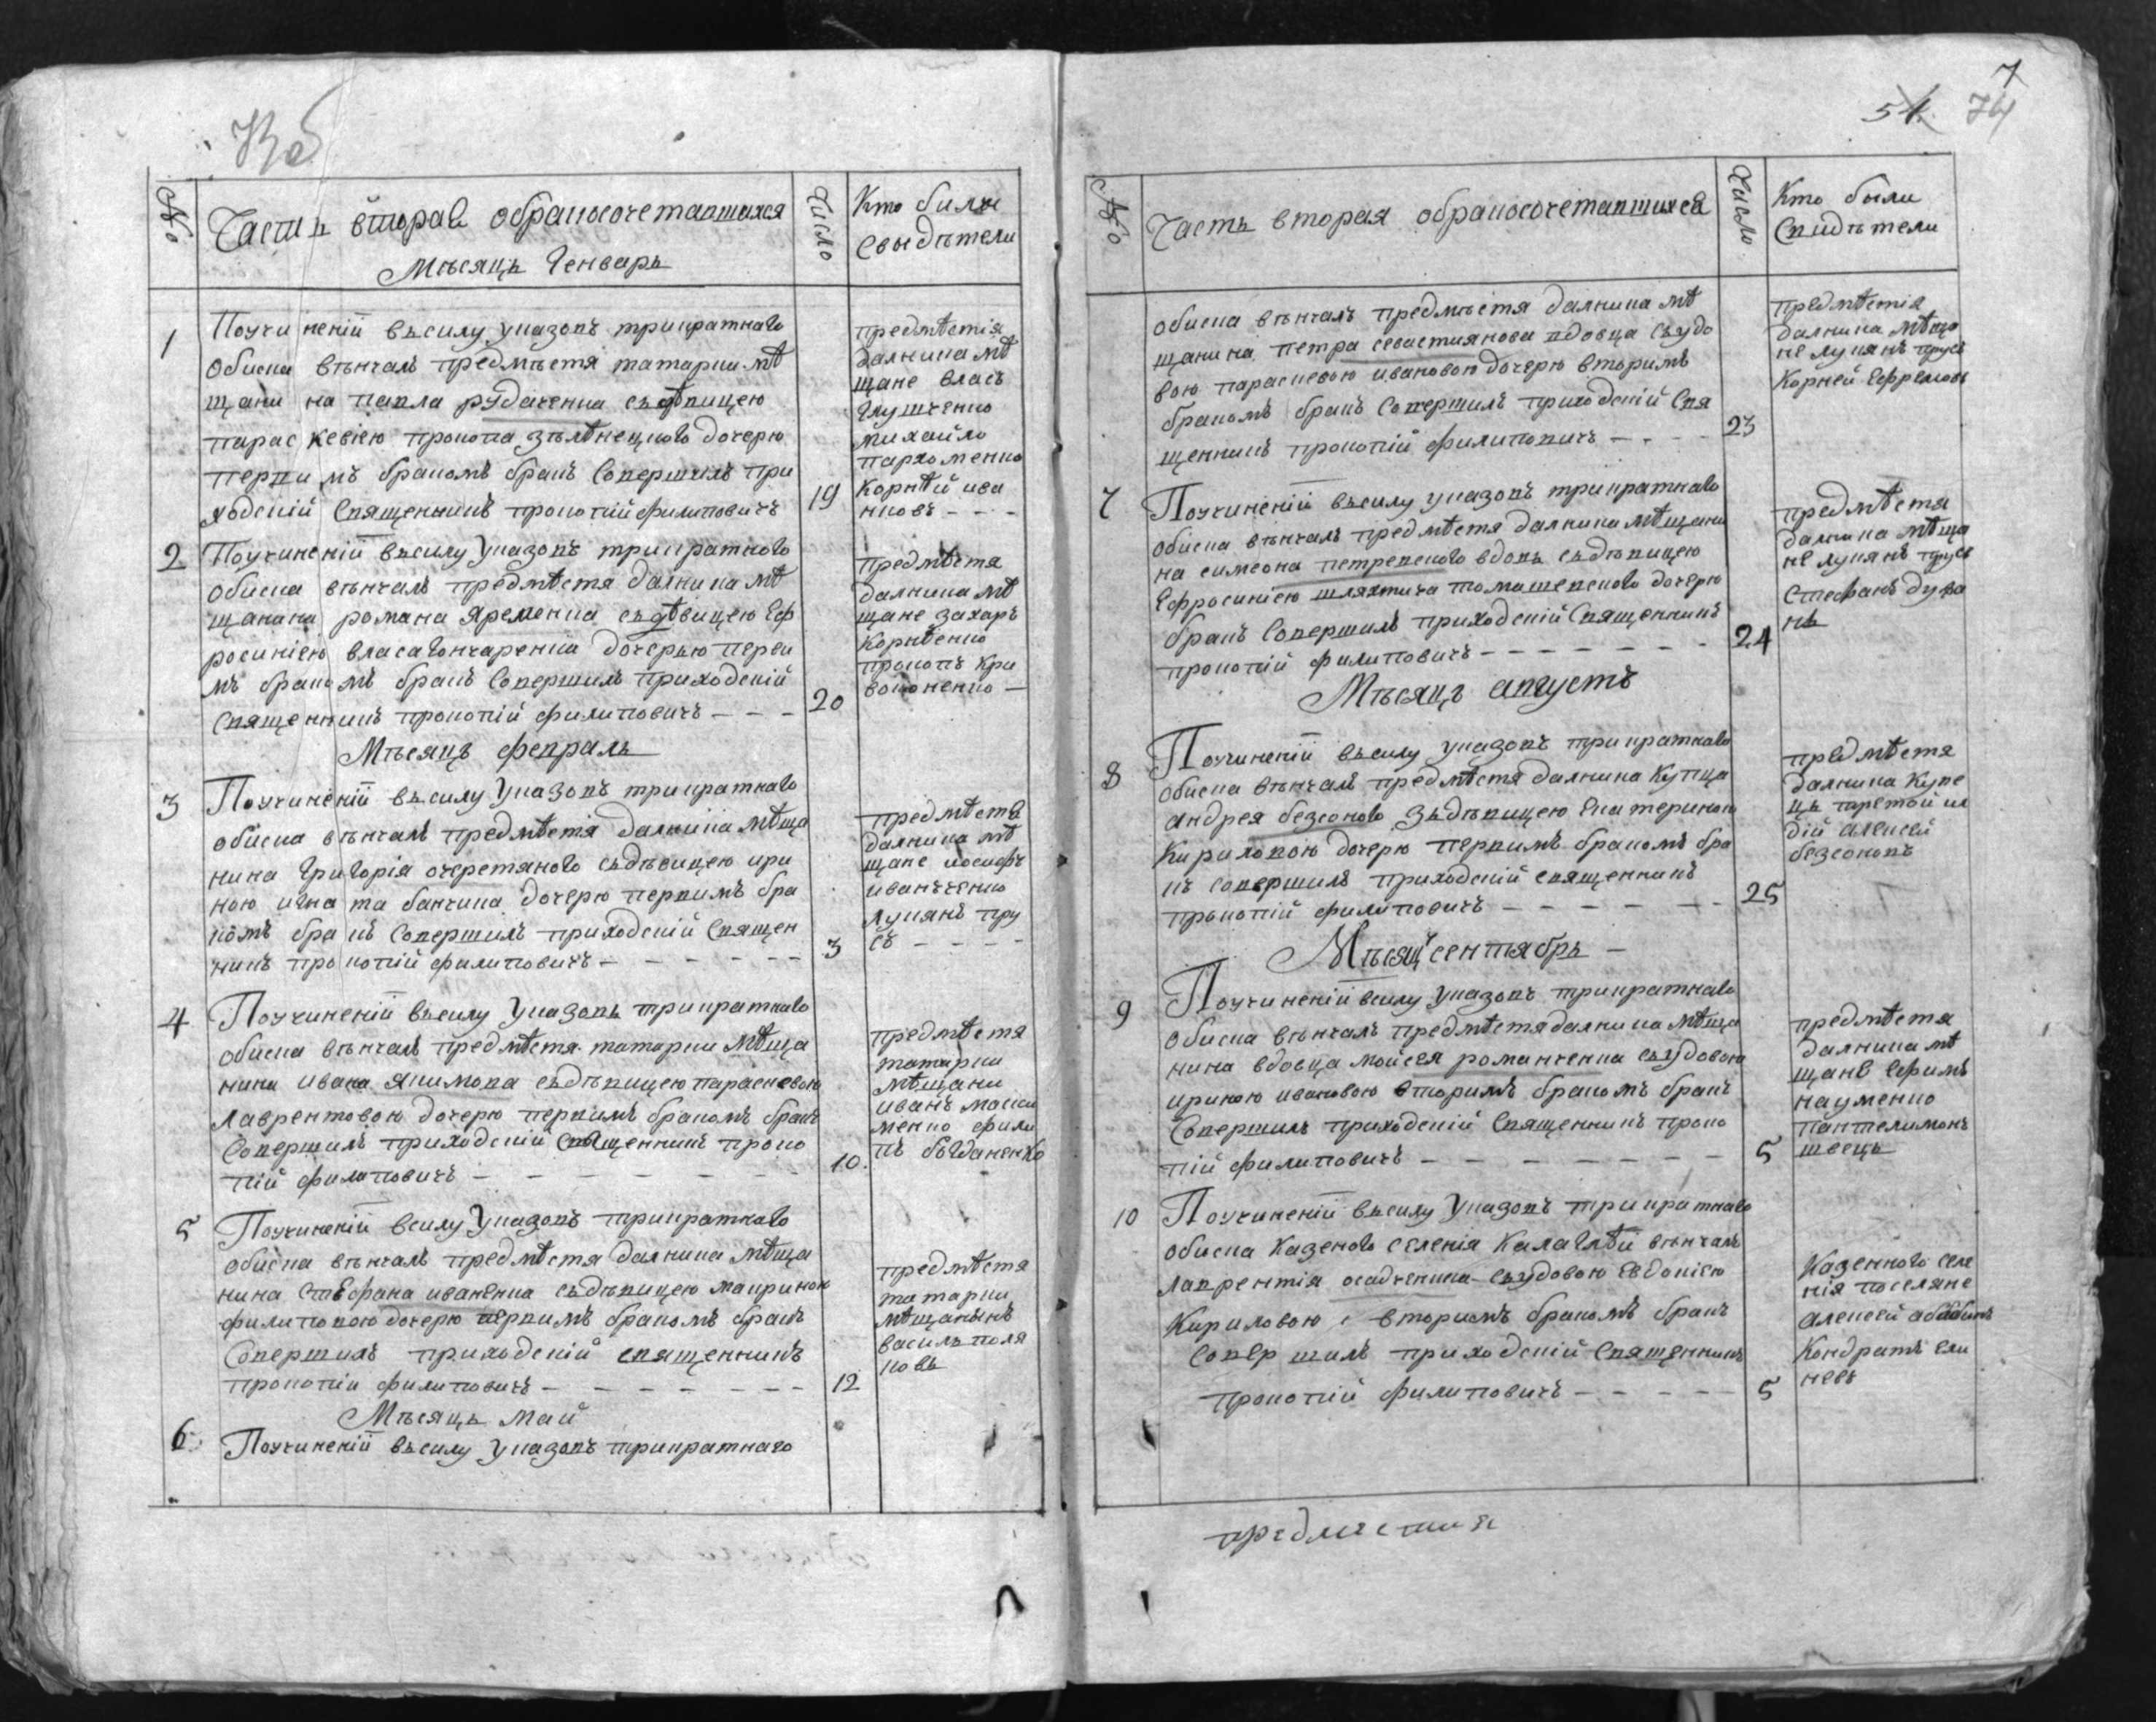 73об
№
Часть вторая обракосочетавшихся
Мѣсяцъ Генварь
Число
Кто били
Свидѣтели
1
Поучиненій въсилу указовъ трикратнаго
обиска вѣнчалъ предмѣстя татарки мѣ
щани на павла рудаченка съдѣвицею
парас кевіею прокопа зѣлѣнецкого дочерю
первимъ бракомъ бракъ Совершилъ при
ходскій Священникъ прокопій филиповичъ
19
предмѣстія
далника мѣ
щане власъ
Глущенко
михайло
пархоменко
Корнѣй ива
нновъ - - -
2
Поучиненій въсилу указовъ трикратного
обиска вѣнчалъ предмѣстя далника мѣ
щанина романа яременка съдѣвицею Еф
росиніею власа гончаренка дочерью перви
мъ бракомъ бракъ Совершилъ приходскій
священникъ прокопій филиповичъ - - -
20
предмѣстя
далника мѣ
щане захаръ
Корнѣенко
прокопъ Кри
вошоненко -
Мѣсяцъ февраль
3
Поучиненій въсилу Указовъ трикратнаго
обиска вѣнчалъ предмѣстя далника мѣща
нина Григорія очеретяного съдѣвицею ири
ною игната банчика дочерю первимъ бра
комъ бракъ Совершилъ приходскій Священ
никъ прокопій филиповичъ - - - - - -
3
предмѣстя
далника мѣ
щане иосифъ
иванченко
Лукянъ тру
съ - - - -
4
Поучиненій въсилу Указовъ трикратнаго
обиска вѣнчалъ предмѣстя татарки мѣща
нина ивана якимова съдѣвицею параскевою
лаврентовою дочерю первимъ бракомъ бракъ
Совершилъ приходскій Священникъ проко
пій филиповичъ - - - - - -
10
предмѣстя
татарки
мѣщани
иванъ макси
менко фили
пъ богданенко
5
Поучиненій всилу Указовъ трикратного
обиска вѣнчалъ предмѣстя далника мѣща
нина стефана иваненка съдѣвицею мавриною
филиповою дочерю первимъ бракомъ бракъ
Совершилъ приходскій священникъ
прокопій филиповичъ - - - - - - -
12
предмѣстя
татарки
мѣщанинъ
василь поля
ковъ
Мѣсяцъ май
6
Поучиненій въсилу Указовъ трикратнаго
7
54 74
№
Часть вторая обракосочетавшихся
Число
Кто были
Свидѣтели
обиска вѣнчалъ предмѣстя далника мѣ
щанина петра севастиянова вдовца съудо
вою параскевою ивановою дочерю вторимъ
бракомъ бракъ Совершилъ приходскій Свя
щенникъ прокопій филиповичъ - - - -
23
предмѣстія
далника мѣща
не лукянъ трусъ
Корней Ефремовъ
7
Поучиненій въсилу указовъ трикратнаго
обиска вѣнчалъ предмѣстя далника мѣщани
на симеона петревского вдовъ съдѣвицею
Ефросиніею шляхтича томашевского дочерю
бракъ Совершилъ приходскій Священникъ
прокопій филиповичъ - - - - - - -
24
предмѣстя
далника мѣща
не лукянъ трусъ
стефанъ дука
нъ
Мѣсяцъ августъ
8
Поучиненій въсилу указовъ трикратнаго
обиска вѣнчалъ предмѣстя далника Купца
андрея безсоного зъдѣвицею Екатериною
Кириловою дочерю первимъ бракомъ бра
къ совершилъ приходскій священникъ
прокопій филиповичъ - - - - - -
25
предмѣстя
далника Купе
цъ третой ги
дій алексей
безсоновъ
Мѣсяцъ сентябрь -
9
Поучиненій всилу указовъ трикратнаго
обиска вѣнчалъ предмѣстя далника мѣща
нина вдовца мойсея романченка съудовою
ириною ивановою вторимъ бракомъ бракъ
Совершилъ приходскій Священникъ проко
пій филиповичъ - - - - - - -
5
предмѣстя
далника мѣ
щанѣ Ефимъ
науменко
пантелимонъ
швецъ
10
Поучиненій въсилу Указовъ трикратнаго
обиска Казеного селенія Калаглѣи вѣнчалъ
лаврентія осадченка съудовою Евдокіею
Кириловою вторимъ бракомъ бракъ
Совершилъ приходскій Священникъ
прокопій филиповичъ - - - - -
5
Казенного селе
нія поселяне
алексей
Кондратъ ели
невъ
предместия